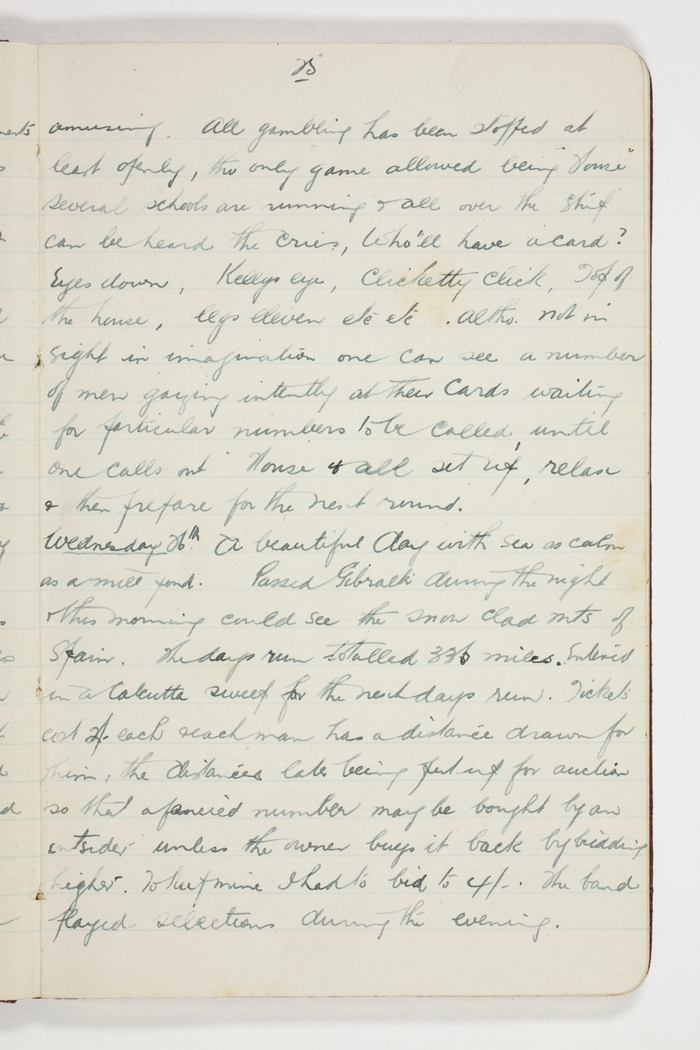 25
ments amusing. All gambling has been stopped at
least openly, the only game allowed being "House"
several schools are running & all over the ship
can be heard the cries, Who'll have a card?
Eyes down, Kellys eye, Clicketty Click, Top of
the house, legs eleven etc etc. altho. not in
sight in imagination one can see a number
of men gazing intently at their cards waiting
for particular numbers to be called, until
one calls out "House & all set up, relax
& then prepare for the next round.
Wednesday 26th A beautiful day with sea as calm
as a mill pond. Passed Gibralti during the night
& this morning could see the snow clad mts of
Spain. The days run totalled 336 miles. Entered
in a Calcutta sweep for the next days run. Tickets
cost 2/- each & each man has a distance drawn for
him, the distances later being put up for auction
so that a fancied number may be bought by an
outsider unless the owner buys it back by bidding
higher. To keep mine I had to bid to 4/-. The band
played selections during the evening.